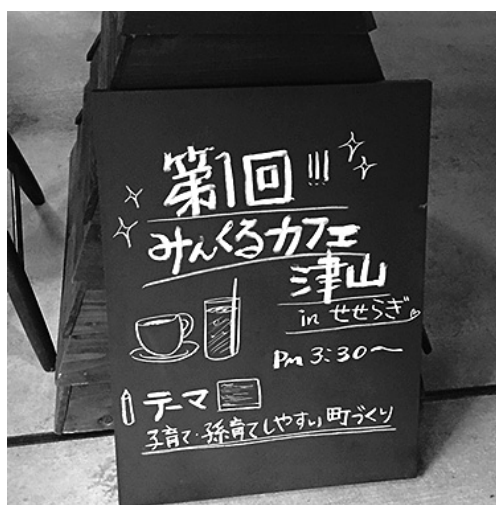 第1回!!!
みんくるカフェ
津山
in せせらぎ
Pm 3:30〜
テーマ
子育て・孫育てしやすい町づくり